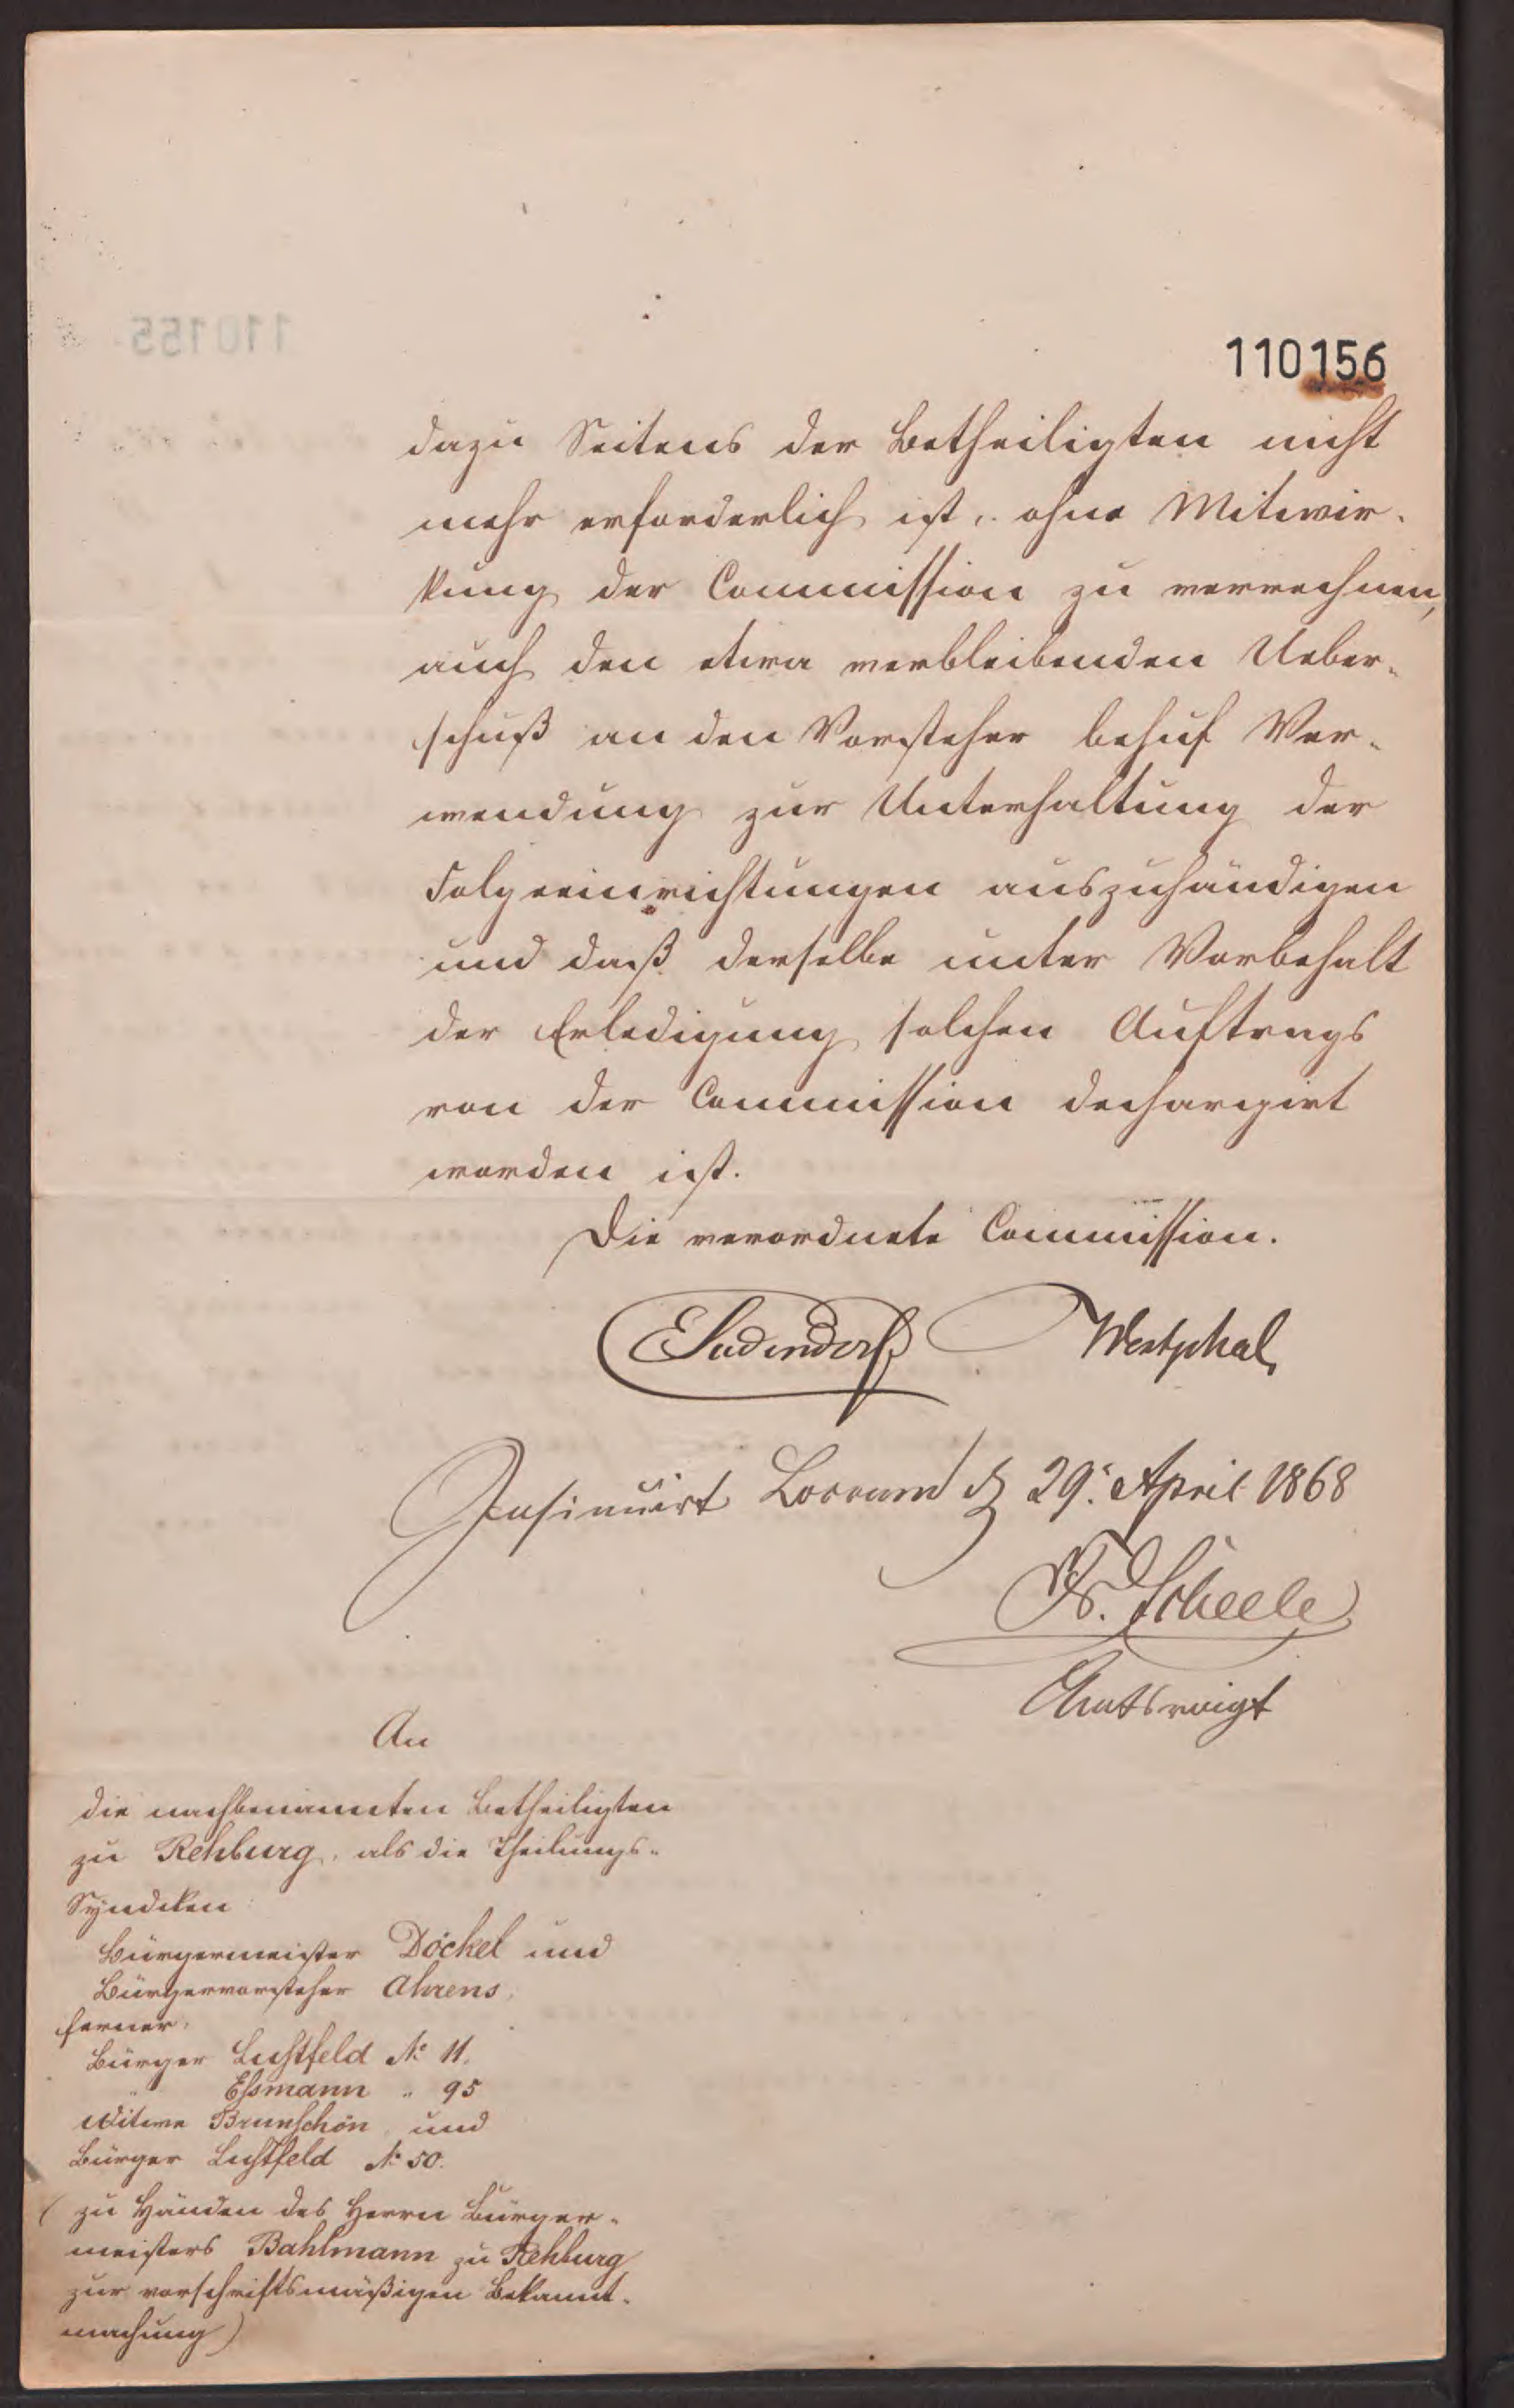 110156
dazu Seitens der Betheiligten nicht
mehr erforderlich ist, ohne Mitwir-
kung der Commission zu verrechnen,
auch den etwa verbleibenden Ueber-
schuß an den Vorsteher behuf Ver-
wendung zur Unterhaltung der
Folgeeinrichtungen auszuhändigen
und daß derselbe unter Vorbehalt
der Erledigung solchen Auftrags
von der Commission dechargirt
worden ist.
Die verordnete Commission.
ESudendorf Westphal
Insinuirt Loccum d 29. April 1868
Fr. Scheele
Amtsvoigt
An
die nachbenannten Betheiligten
zu Rehburg, als die Theilungs-
Syndiken
Bürgermeister Döckel und
Bürgervorsteher Ahrens,
ferner,
Bürger Lustfeld No 11,
" Eßmann " 95
Witwe Brunschön, und
Bürger Lustfeld No 50.
(zu Händen des Herrn Bürger-
meisters Bahlmann zu Rehburg
zur vorschriftsmäßigen Bekannt-
machung)